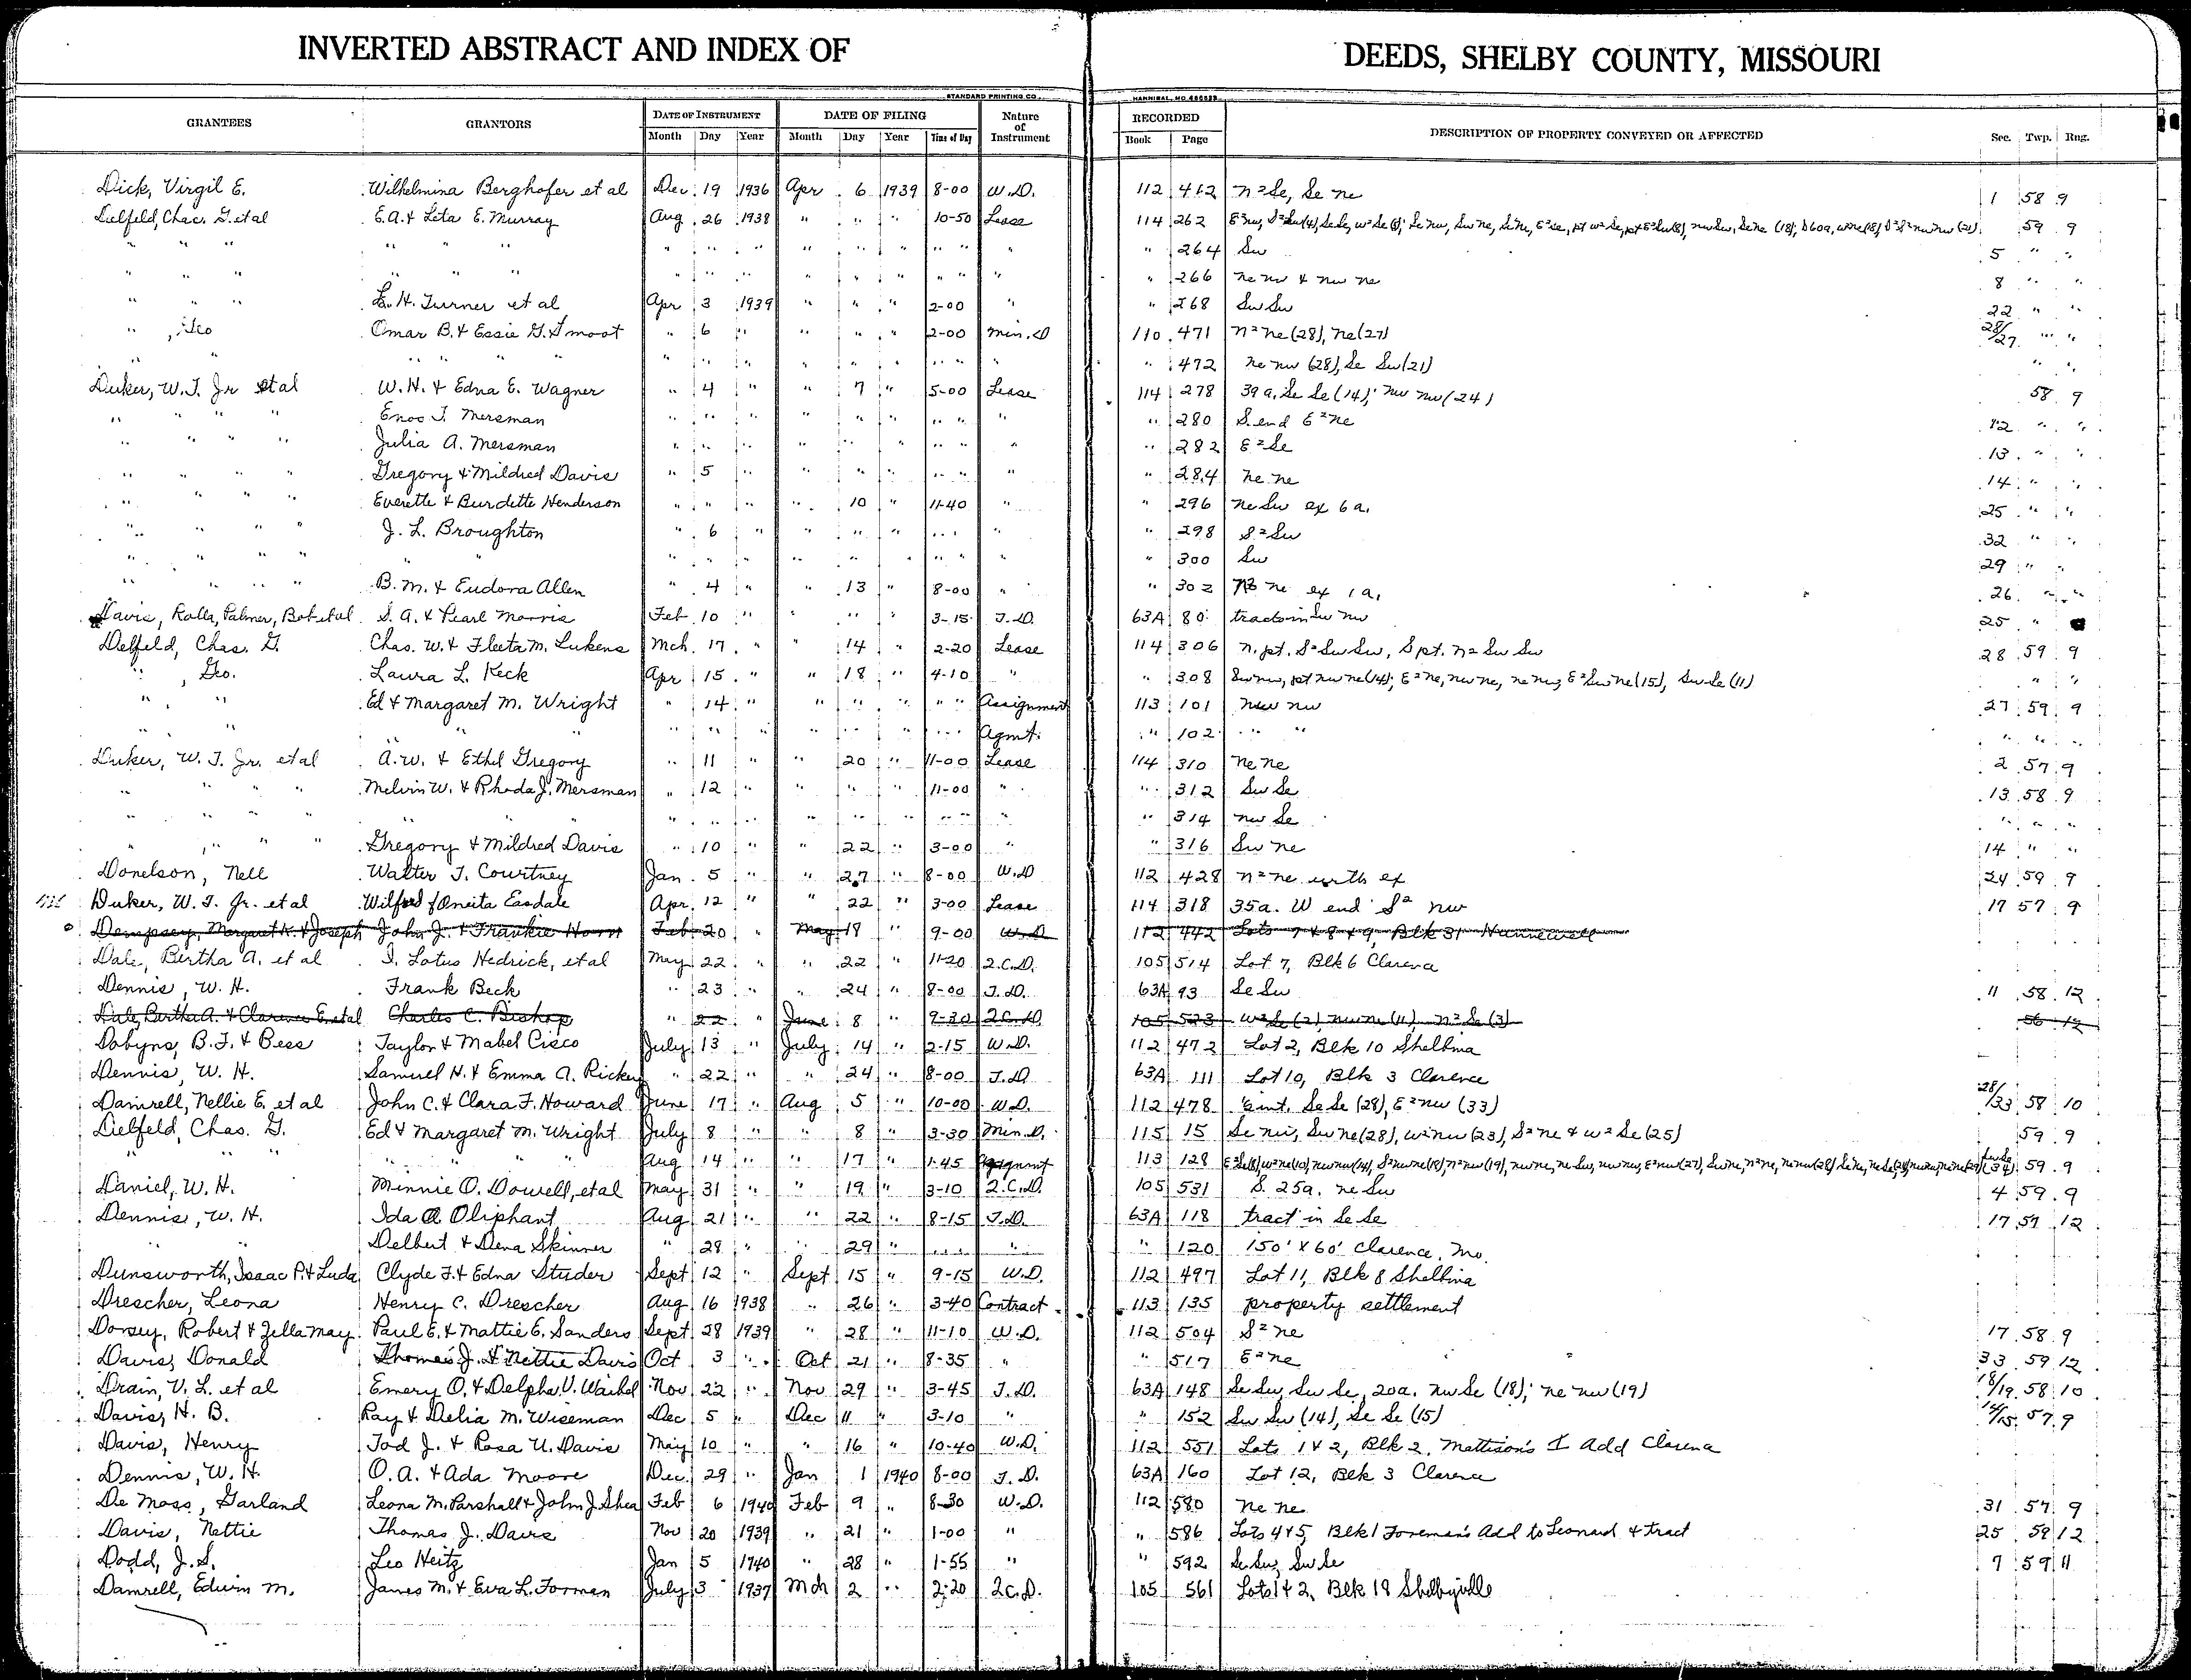 INVERTED ABSTRACT AND INDEX OF DEEDS, SHELBY COUNTY, MISSOURI
STANDARD PRINTING CO. HANNIBAL, MO.
GRANTEES GRANTORS DATE OF INSTRUMENT DATE OF FILING Nature of Instrument RECORDED DESCRIPTION OF PROPERTY CONVEYED OR AFFECTED Sec. Twp. Rng.
Month Day Year Month Day Year Time of Day Book Page
Dick, Virgil E. Wilhelmina Berghofer et al Dec. 19 1936 Apr 6 1939 8-00 W.D. 112 412 N²Se, Se ne 1 58 9
Dielfeld, Chas. G. et al E.A. & Leta E. Murray Aug 26 1938 " " " 10-50 Lease 114 262 59 9
" " " " " " " " " " " " " " " " " 264 Sw 5 " "
" " " " " " " " " " " " " " " " " 266 ne nw & nw ne 8 " "
" " " L. H. Turner et al Apr 3 1939 " " " 2-00 " " 268 Sw Sw 22 " "
" , Geo Omar B. & Essie G. Smoot " 6 " " " " 2-00 Min. D 110 471 N² ne (28), ne (27) 28/27 " "
" " " " " " " " " " " " " " 472 ne nw (28), Se Sw (21) " "
Duker, W. T. Jr et al W. H. & Edna E. Wagner " 4 " " 7 " 5-00 Lease 114 278 39 a. Se Se (14); nw nw (24) 58 9
" " " " Enos T. Mersman " " " " " " " " " " 280 S. end E² ne 12 " "
" " " " Julia A. Mersman " " " " " " " " " " 282 E² Se 13 " "
" " " " Gregory & Mildred Davis " 5 " " " " " " " " 284 ne ne 14 " "
" " " " Everette & Burdette Henderson " " " " 10 " 11-40 " " 296 ne Sw ex 6 a. 25 " "
" " " " J. L. Broughton " 6 " " " " " " " 298 S² Sw 32 " "
" " " " " " " " " " " " " " " 300 Sw 29 " "
" " " " B. M. & Eudora Allen " 4 " " 13 " 8-00 " " 302 ne ex 1 a. 26 " "
Davis, Rolla, Palmer, Bob et al S. A. & Pearl Morris Feb 10 " " " " 3-15 T.D. 63A 80 tracts in Sw nw 25 "
Delfeld, Chas. G. Chas. W. & Fleeta M. Lukens Mch. 17 " " 14 " 2-20 Lease 114 306 N. pt. S² Sw Sw, S pt. N² Sw Sw 28 59 9
" , Geo. Laura L. Keck Apr 15 " " 18 " 4-10 " " 308 Sw nw, pt nw ne (14); E² ne, nw ne, ne nw, E² Sw ne (15), Sw Se (11) " "
" " Ed & Margaret M. Wright " 14 " " " " " " Assignment 113 101 nw nw 27 59 9
" " " " " " " " " " " Agmt. " 102 " " " " "
Duker, W. T. Jr. et al A. W. & Ethel Gregory " 11 " " 20 " 11-00 Lease 114 310 ne ne 2 57 9
" " " " Melvin W. & Rhoda J. Mersman " 12 " " " " 11-00 " " 312 Sw Se 13 58 9
" " " " " " " " " " " " " " " 314 nw Se " " "
" " " Gregory & Mildred Davis " 10 " " 22 " 3-00 " " 316 Sw ne 14 " "
Donelson, Nell Walter T. Courtney Jan. 5 " " 27 " 8-00 W.D 112 428 N² ne with ex 24 59 9
Duker, W. T. Jr. et al Wilford & Oneita Easdale Apr. 12 " " 22 " 3-00 Lease 114 318 35 a. W end S² nw 17 57 9
Dempsey, Margaret K. & Joseph John J. & Frankie Horn Feb 20 " May 18 " 9-00 W.D 112 442 Lots 7 & 8 & 9, Blk 31 Hunnewell
Dale, Bertha A. et al I. Lotus Hedrick, et al May 22 " " 22 " 11-20 2.C.D. 105 514 Lot 7, Blk 6 Clarence
Dennis, W. H. Frank Beck " 23 " " 24 " 8-00 T.D. 63A 93 Se Sw 11 58 12
Dale, Bertha A. & Clarence E. et al Charles C. Bishop " 22 " June 8 " 9-30 2.C.D. 105 523 W² Se (2), nw ne (11), N² Se (3) 56 12
Dobyns, B. F. & Bess Taylor & Mabel Cisco July 13 " July 14 " 2-15 W.D. 112 472 Lot 2, Blk 10 Shelbina
Dennis, W. H. Samuel H. & Emma A. Rickey " 22 " " 24 " 8-00 T.D 63A 111 Lot 10, Blk 3 Clarence
Damrell, Nellie E. et al John C. & Clara F. Howard June 17 " Aug 5 " 10-00 W.D. 112 478 int. Se Se (28), E² nw (33) 28/33 58 10
Dielfeld, Chas. G. Ed & Margaret M. Wright July 8 " " 8 " 3-30 Min. D. 115 15 Se nw, Sw ne (28), W² nw (23), S² ne & W² Se (25) 59 9
" " " " " " Aug 14 " " 17 " 1-45 113 128 59 9
Daniel, W. H. Minnie O. Dowell, et al May 31 " " 19 " 3-10 2.C.D. 105 531 S. 25a. ne Sw 4 59 9
Dennis, W. H. Ida A Oliphant Aug 21 " " 22 " 8-15 T.D. 63A 118 tract in Se Se 17 57 12
" " Delbert & Dena Skinner " 28 " " 29 " " " " 120 150' X 60' Clarence, Mo.
Dunsworth, Isaac P. & Luda Clyde F. & Edna Studer Sept 12 " Sept 15 " 9-15 W.D. 112 497 Lot 11, Blk 8 Shelbina
Drescher, Leona Henry C. Drescher Aug 16 1938 " 26 " 3-40 Contract 113 135 property settlement
Dorsey, Robert & Zella May Paul E. & Mattie E. Sanders Sept 28 1939 " 28 " 11-10 W.D. 112 504 S² ne 17 58 9
Davis, Donald Thomas J. & Nettie Davis Oct 3 " Oct 21 " 8-35 " " 517 E² ne 33 59 12
Drain, V. L. et al Emery O. & Delpha V. Waibel Nov 22 " Nov 29 " 3-45 T.D. 63A 148 Se Sw, Sw Se, 20a. nw Se (18); ne nw (19) 18/19 58 10
Davis, H. B. Ray & Delia M. Wiseman Dec 5 " Dec 11 " 3-10 " " 152 Sw Sw (14), Se Se (15) 14/15 57 9
Davis, Henry Tod J. & Rosa U. Davis May 10 " " 16 " 10-40 W.D. 112 551 Lots 1 & 2, Blk 2, Mattison's I Add Clarence
Dennis, W. H. O. A. & Ada Moore Dec. 29 " Jan 1 1940 8-00 T.D. 63A 160 Lot 12, Blk 3 Clarence
De Moss, Garland Leona M. Parshall & John J. Shea Feb 6 1940 Feb 9 " 8-30 W.D. 112 580 ne ne 31 57 9
Davis, Nettie Thomas J. Davis Nov 20 1939 " 21 " 1-00 " " 586 Lots 4 & 5, Blk 1 Foreman's Add to Leonard & tract 25 59 12
Dodd, J. S. Leo Heitz Jan 5 1940 " 28 " 1-55 " " 592 Se Sw, Sw Se 7 59 11
Damrell, Edwin M. James M. & Eva L. Forman July 3 1937 Mch 2 " 2-20 2C.D. 105 561 Lots 1 & 2, Blk 18 Shelbyville